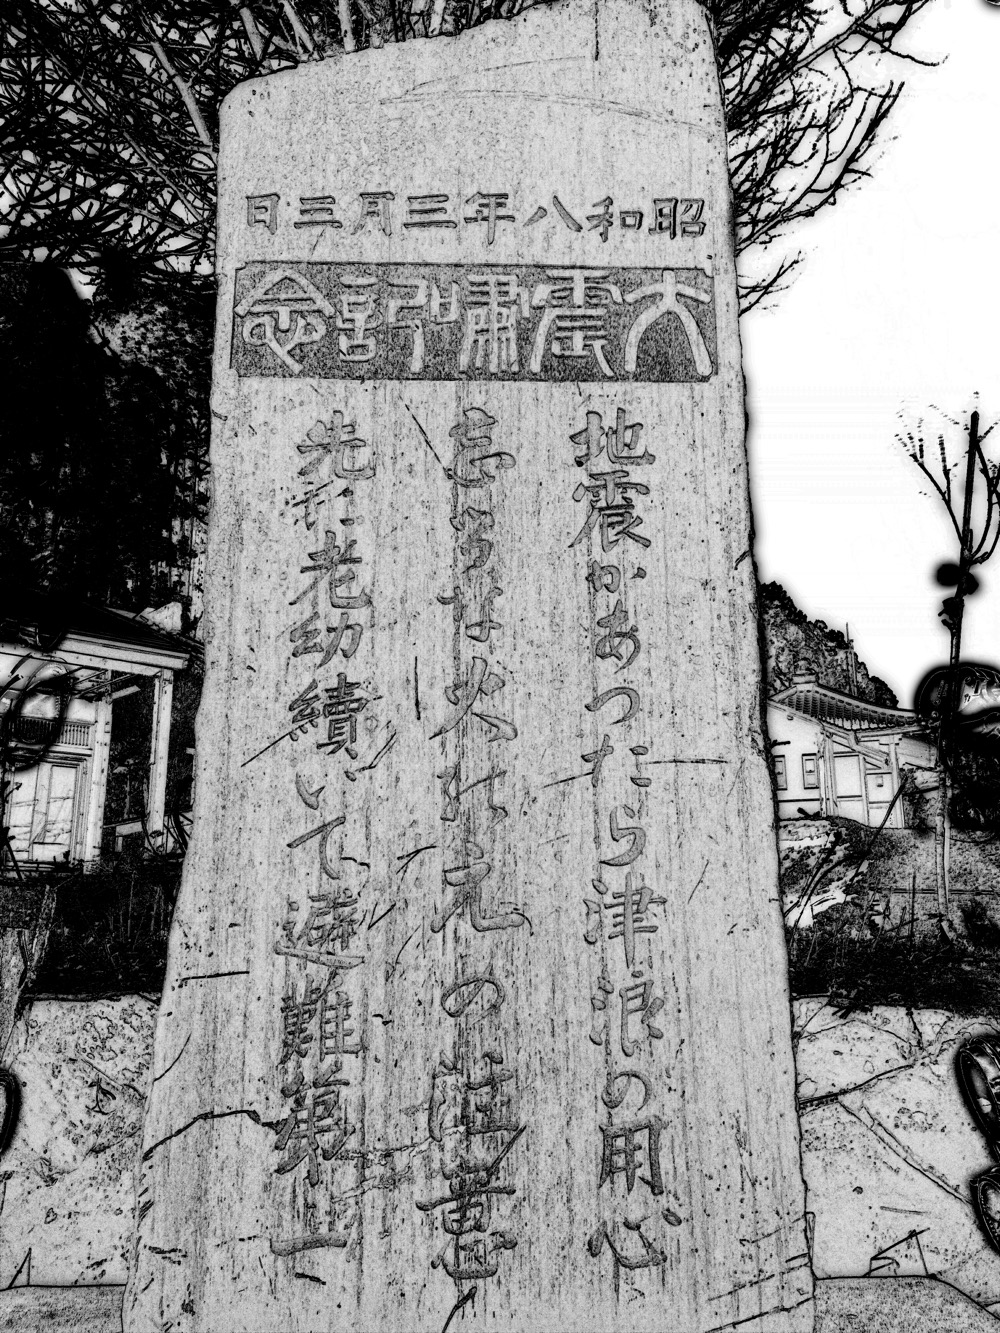 昭和八年三月三日
大震嘯記念
地震かあつたら津浪の用心
忘るな火の元の注意
先す老幼續いて避難第一